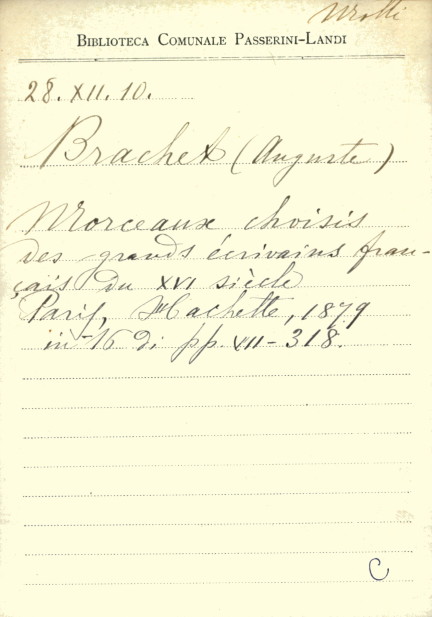 BIBLIOTECA COMUNALE PASSERINI-LANDI
28. XII. 10.
Brachet (Auguste)
Morceaux choisis
des grands écrivains fran-
çais du XVI siècle
Paris, Hachette, 1879
in 16 di pp. VII-318.
C